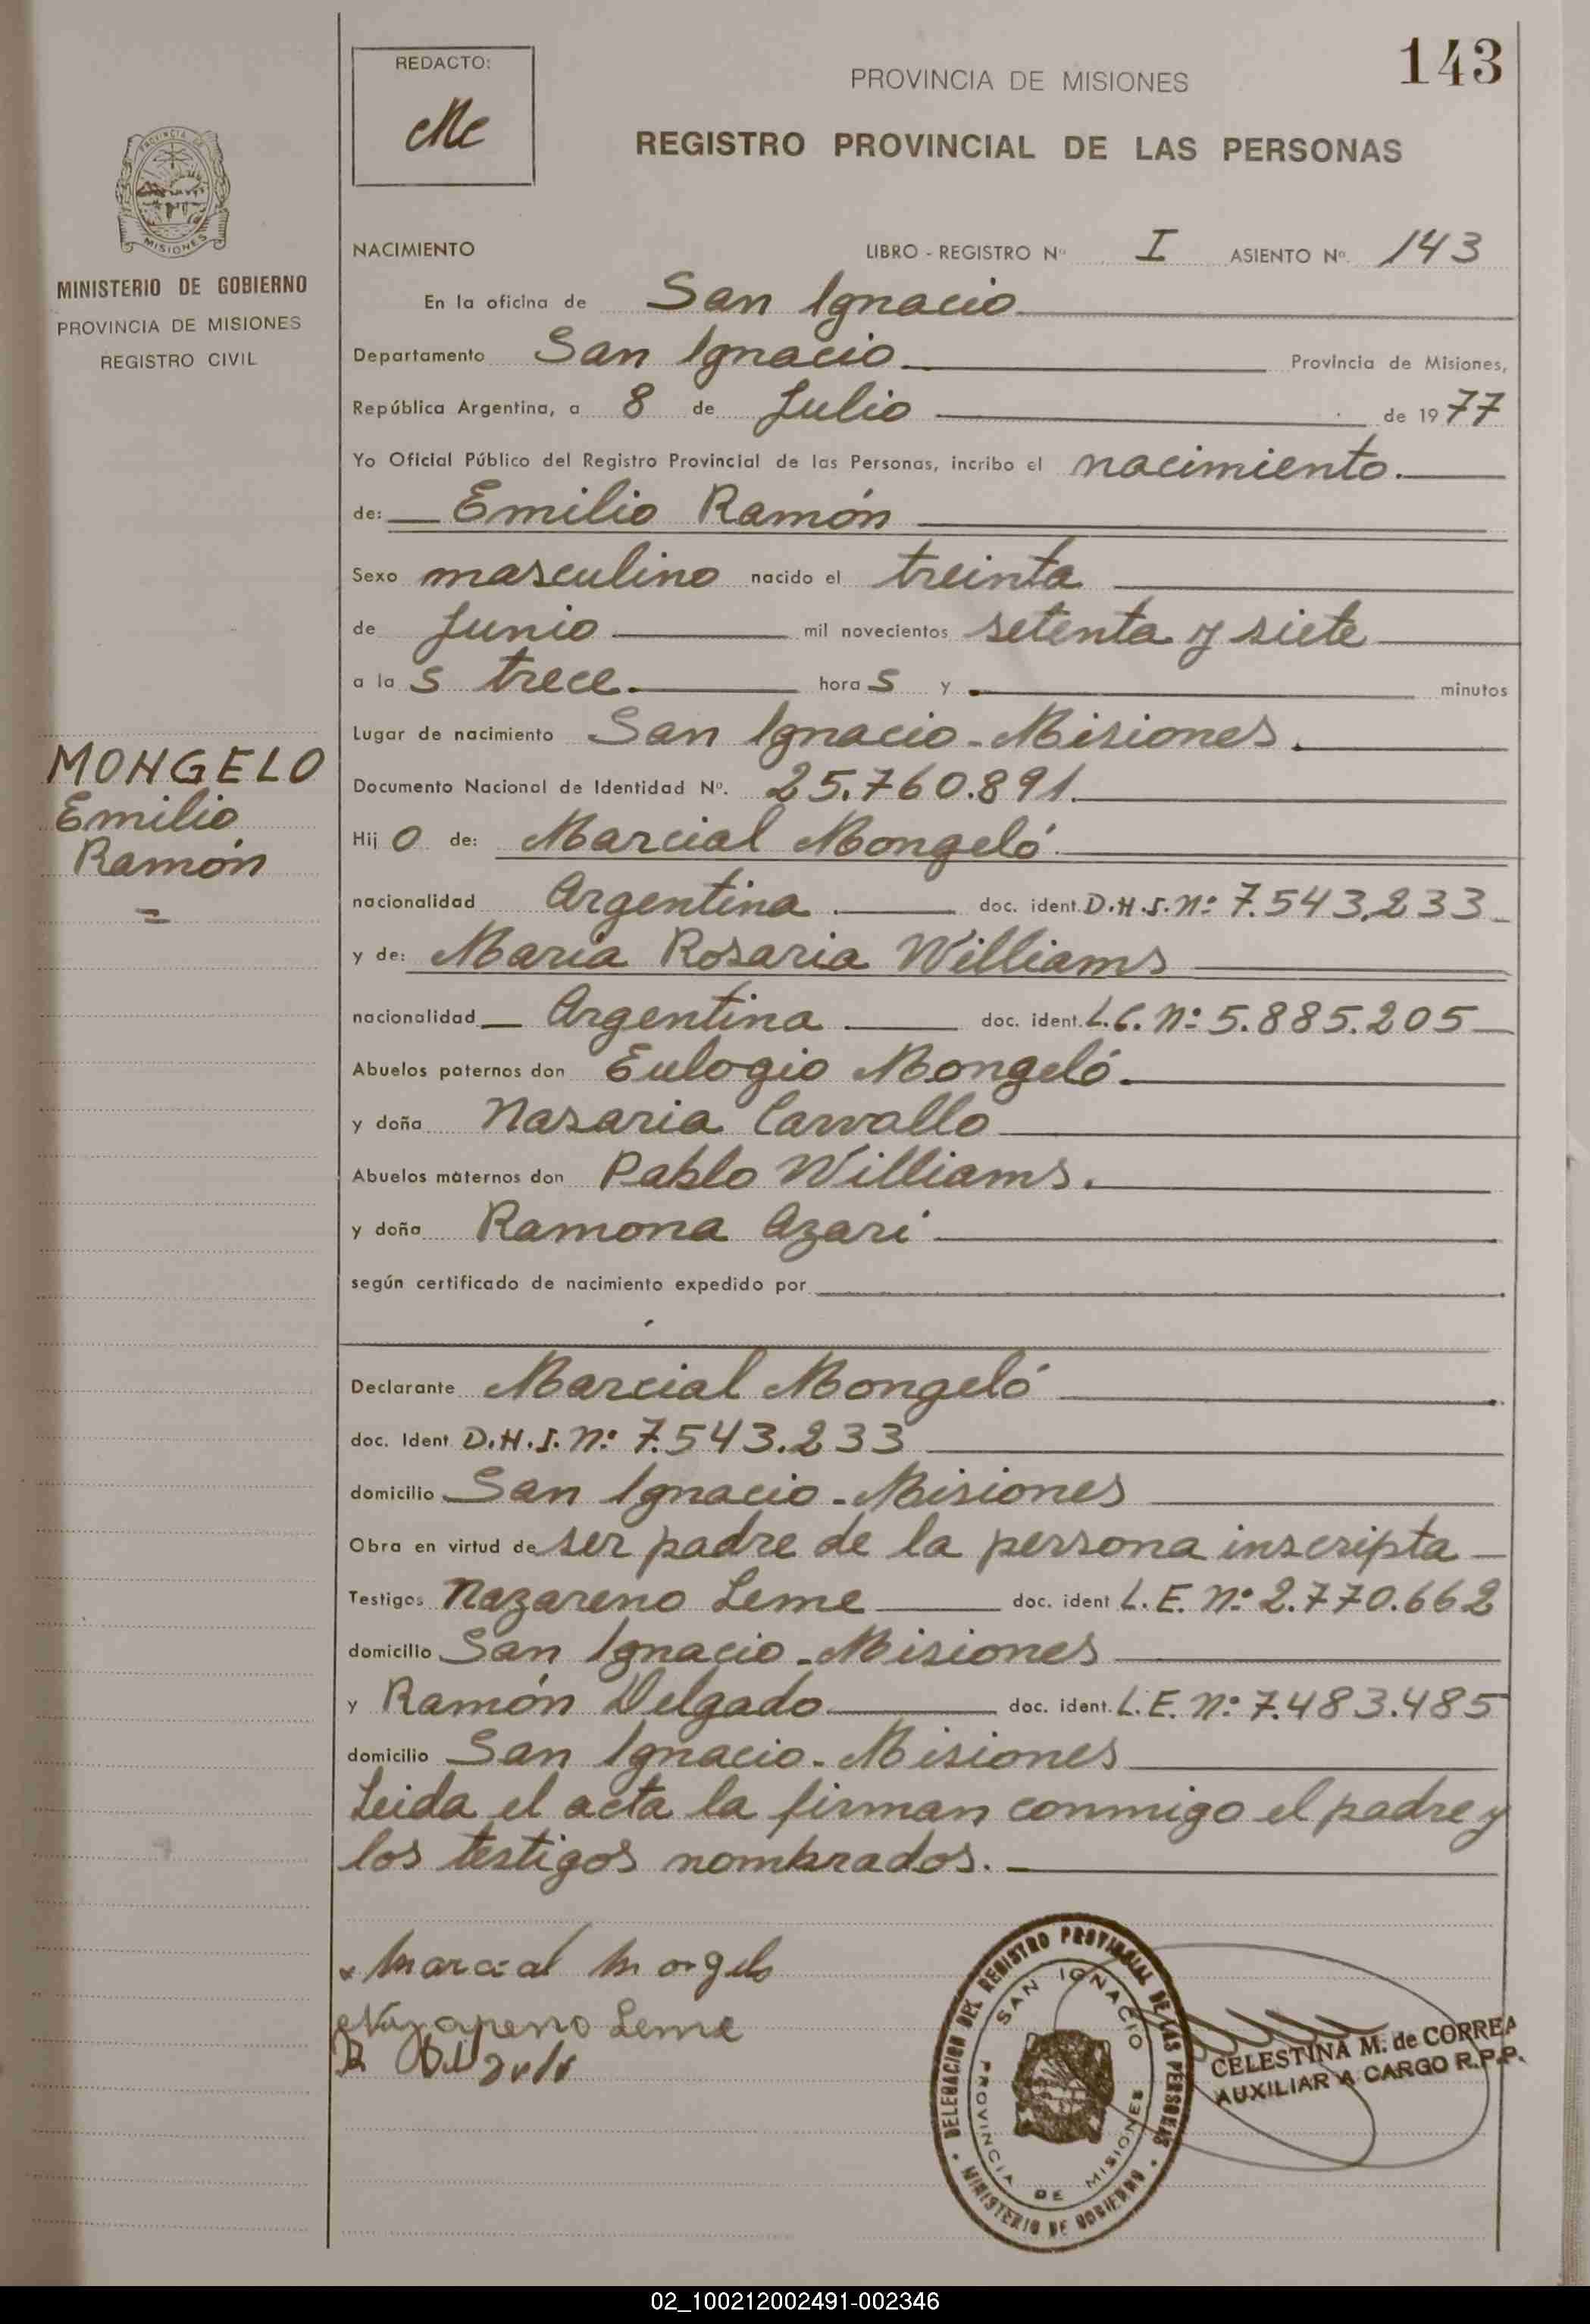 143
REDACTO:
PROVINCIA DE MISIONES
REGISTRO PROVINCIAL DE LAS PERSONAS
PROVINCIA DE
MISIONES
MINISTERIO DE GOBIERNO
PROVINCIA DE MISIONES
REGISTRO CIVIL
NACIMIENTO LIBRO - REGISTRO Nº I ASIENTO Nº 143
En la oficina de San Ignacio
Departamento San Ignacio Provincia de Misiones,
República Argentina, a 8 de Julio de 1977
Yo Oficial Público del Registro Provincial de las Personas, incribo el nacimiento.
de: Emilio Ramón
Sexo masculino nacido el treinta
de Junio mil novecientos setenta y siete
a la s trece. hora s y minutos
Lugar de nacimiento San Ignacio - Misiones.
MONGELO
Emilio
Ramón
Documento Nacional de Identidad Nº. 25.760.891.
Hij o de: Marcial Mongeló.
nacionalidad Argentina doc. ident. D.N.I. Nº 7.543.233
y de: Maria Rosaria Williams
nacionalidad Argentina doc. ident. L.C. Nº 5.885.205
Abuelos paternos don Eulogio Mongeló.
y doña Nasaria Carvallo
Abuelos maternos don Pablo Williams.
y doña Ramona Azari
según certificado de nacimiento expedido por
Declarante Marcial Mongeló
doc. Ident D.N.I. Nº 7.543.233
domicilio San Ignacio - Misiones
Obra en virtud de ser padre de la persona inscripta
Testigos Nazareno Leme doc. ident L.E. Nº 2.770.662
domicilio San Ignacio - Misiones
y Ramón Delgado doc. ident. L.E. Nº 7.483.485
domicilio San Ignacio - Misiones
Leida el acta la firman conmigo el padre y
los testigos nombrados.
Marcial Mongelo
Nazareno Leme
DELEGACION DEL REGISTRO PROVINCIAL DE LAS PERSONAS
SAN IGNACIO
PROVINCIA DE MISIONES
MINISTERIO DE GOBIERNO
CELESTINA M. de CORREA
AUXILIAR A CARGO R.P.P.
02_100212002491-002346